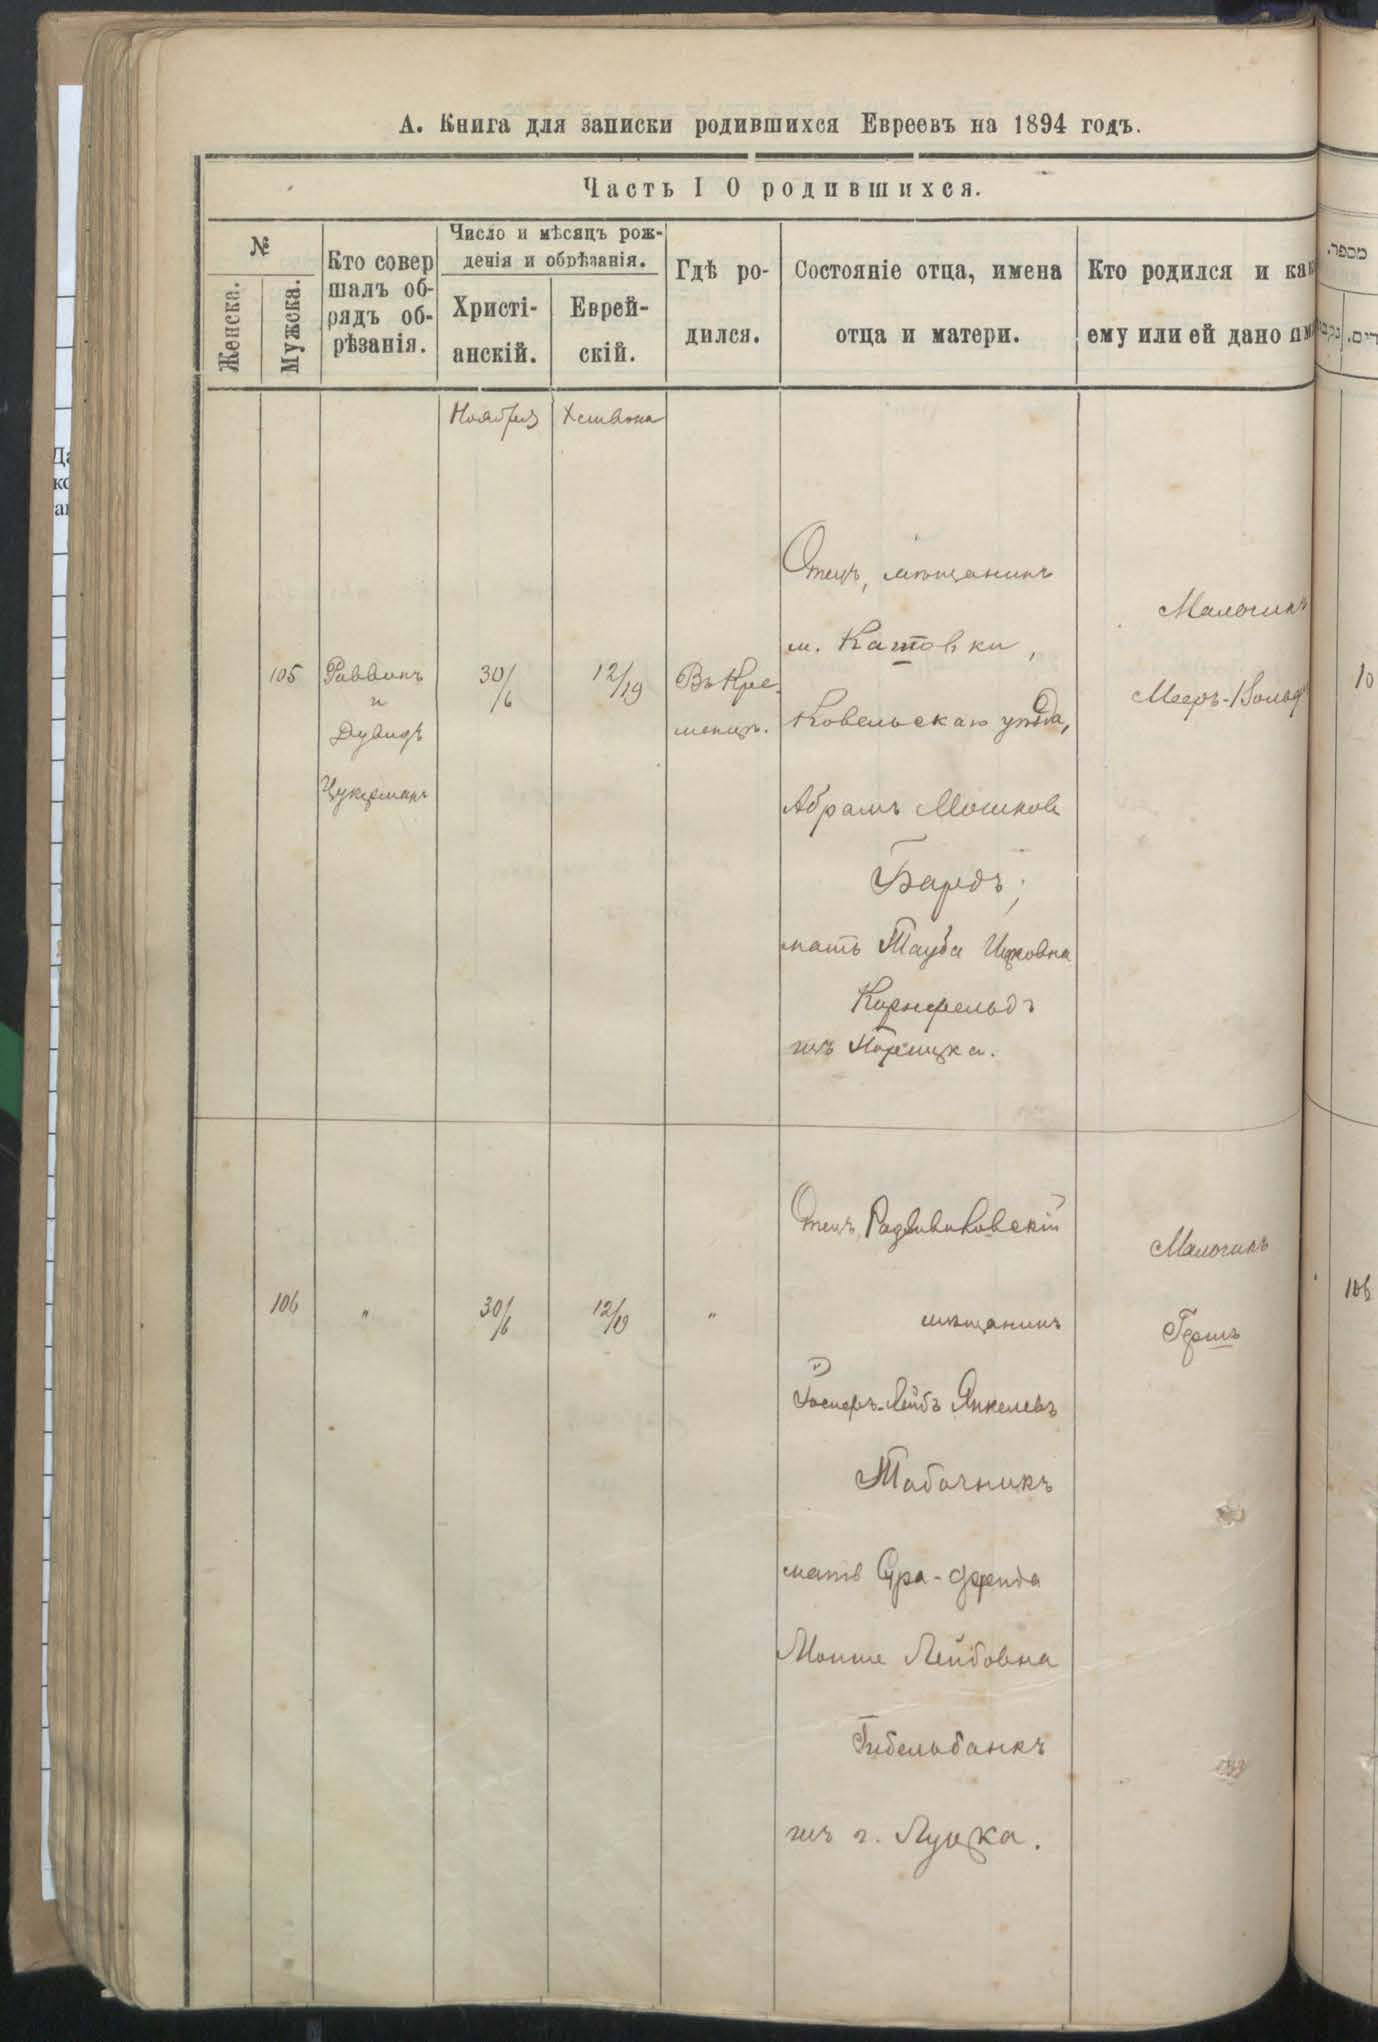 А. Книга для записки родившихся Евреевъ на 1894 годъ.
Часть I О родившихся.
№
Женска.
Мужска.
Кто совер
шалъ об-
рядъ об-
рѣзанія.
Число и мѣсяцъ рож-
денія и обрѣзанія.
Христі-
анскій.
Еврей-
скій.
Гдѣ ро-
дился.
Состояніе отца, имена
отца и матери.
Кто родился и как
ему или ей дано им
מספר.
Ноября
Хешвона
105
Раввинъ
и
Дувидъ
Цукерманъ
30/6
12/19
Въ Кре-
менцѣ.
Отецъ, мѣщанинъ
м. Катовки,
Ковельскаго уѣзда,
Абрамъ Мошков
Баредъ;
мать Тауба Ицковна
Корнфельдъ
изъ Порицка.
Мальчикъ
Мееръ-Вольф
10
106
"
30/6
12/19
"
Отецъ Радзивиловскій
мѣщанинъ
Іосифъ-Лейбъ Янкелевъ
Табачникъ
мать Сура-Фрейда
Мошке Лейбовна
Гибельбанкъ
изъ г. Луцка.
Мальчикъ
Гершъ
106